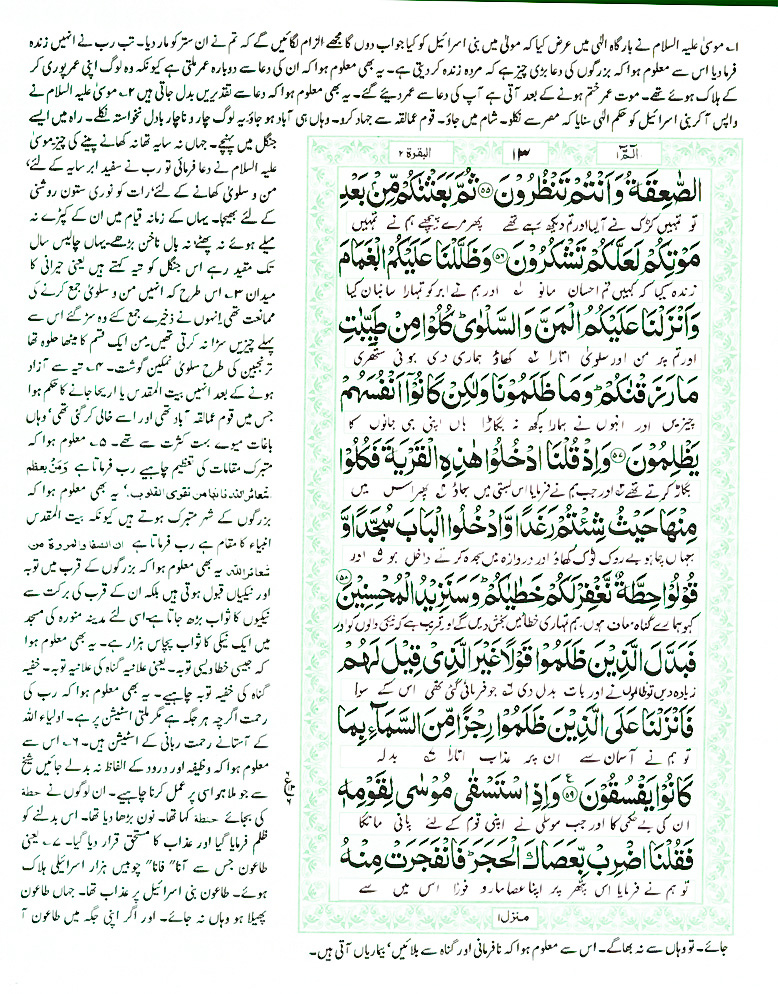 ۱۔ موسیٰ علیہ السلام نے بارگاہ الٰہی میں عرض کیا کہ مولیٰ میں بنی اسرائیل کو کیا جواب دوں گا مجھے الزام لگائیں گے کہ تم نے ان ستر کو مار دیا۔ تب رب نے انہیں زندہ
فرما دیا اس سے معلوم ہوا کہ بزرگوں کی دعا بڑی چیز ہے کہ مردہ زندہ کر دیتی ہے۔ یہ بھی معلوم ہوا کہ ان کی دعا سے دوبارہ عمر ملتی ہے کیونکہ وہ لوگ اپنی عمر پوری کر
کے ہلاک ہوئے تھے۔ موت عمر ختم ہونے کے بعد آتی ہے آپ کی دعا سے عمر دیئے گئے۔ یہ بھی معلوم ہوا کہ دعا سے تقدیریں بدل جاتی ہیں ۲۔ موسیٰ علیہ السلام نے
واپس آ کر بنی اسرائیل کو حکم الٰہی سنایا کہ مصر سے نکلو۔ شام میں جاؤ۔ قوم عمالقہ سے جہاد کرو۔ وہاں ہی آباد ہو جاؤ۔ یہ لوگ چار و ناچار بادل نخواستہ نکلے۔ راہ میں ایسے
جنگل میں پہنچے۔ جہاں نہ سایہ تھا نہ کھانے پینے کی چیز۔ موسیٰ
علیہ السلام نے دعا فرمائی تو رب نے سفید ابر سایہ کے لئے'
من و سلویٰ کھانے کے لئے' رات کو نوری ستون روشنی
کے لئے بھیجا۔ یہاں کے زمانہ قیام میں ان کے کپڑے نہ
میلے ہوئے نہ پھٹے نہ بال ناخن بڑھے۔ یہاں چالیس سال
تک مقید رہے اس جنگل کو تیہ کہتے ہیں یعنی حیرانی کا
میدان ۳۔ اس طرح کہ انہیں من و سلویٰ جمع کرنے کی
ممانعت تھی انہوں نے ذخیرے جمع کئے وہ سڑ گئے اس سے
پہلے چیزیں سڑا نہ کرتی تھیں۔ من ایک قسم کا میٹھا حلوہ تھا
ترنجبین کی طرح سلویٰ نمکین گوشت۔ ۴۔ تیہ سے آزاد
ہونے کے بعد انہیں بیت المقدس یا اریحا جانے کا حکم ہوا
جس میں قوم عمالقہ آباد تھی اور اسے خالی کر گئی تھی' وہاں
باغات میوے بہت کثرت سے تھے۔ ۵۔ معلوم ہوا کہ
متبرک مقامات کی تعظیم چاہیے رب فرماتا ہے وَمَنْ یعظم
شعائر اللہ فانھا من تقوی القلوب۔' یہ بھی معلوم ہوا کہ
بزرگوں کے شہر متبرک ہوتے ہیں کیونکہ بیت المقدس
انبیاء کا مقام ہے رب فرماتا ہے ان الصفا والمروة من
شعائر اللہ۔ یہ بھی معلوم ہوا کہ بزرگوں کے قرب میں توبہ
اور نیکیاں قبول ہوتی ہیں بلکہ ان کے قرب کی برکت سے
نیکیوں کا ثواب بڑھ جاتا ہے۔ اسی لئے مدینہ منورہ کی مسجد
میں ایک نیکی کا ثواب پچاس ہزار ہے۔ یہ بھی معلوم ہوا
کہ جیسی خطا ویسی توبہ۔ یعنی علانیہ گناہ کی علانیہ توبہ۔ خفیہ
گناہ کی خفیہ توبہ چاہیے۔ یہ بھی معلوم ہوا کہ رب کی
رحمت اگرچہ ہر جگہ ہے مگر ملتی اسٹیشن پر ہے۔ اولیاء اللہ
کے آستانے رحمت ربانی کے اسٹیشن ہیں۔ ۶۔ اس سے
معلوم ہوا کہ وظیفہ اور درود کے الفاظ نہ بدلے جائیں شیخ
سے جو ملا ہو اسی پر عمل کرنا چاہیے۔ ان لوگوں نے حطة
کی بجائے حنطة کہا تھا۔ نون بڑھا دیا تھا۔ اس بدلنے کو
ظلم فرمایا گیا اور عذاب کا مستحق قرار دیا گیا۔ ۷۔ یعنی
طاعون جس سے آناً" فاناً" چوبیس ہزار اسرائیلی ہلاک
ہوئے۔ طاعون بنی اسرائیل پر عذاب تھا۔ جہاں طاعون
پھیلا ہو وہاں نہ جائے۔ اور اگر اپنی جگہ میں طاعون آ
الٓمّٓ ۱
۱۳
البقرة ۲
الصّٰعِقَةُ وَاَنْتُمْ تَنْظُرُوْنَ ۵۵ ثُمَّ بَعَثْنٰكُمْ مِّنْۢ بَعْدِ
تو تمہیں کڑک نے آلیا اور تم دیکھ رہے تھے پھر مرے پیچھے ہم نے تمہیں
مَوْتِكُمْ لَعَلَّكُمْ تَشْكُرُوْنَ ۵۶ وَظَلَّلْنَا عَلَيْكُمُ الْغَمَامَ
زندہ کیا کہ کہیں تم احسان مانو اور ہم نے ابر کو تمہارا سائبان کیا
وَاَنْزَلْنَا عَلَيْكُمُ الْمَنَّ وَالسَّلْوٰى كُلُوْا مِنْ طَيِّبٰتِ
اور تم پر من اور سلویٰ اتارا کھاؤ ہماری دی ہوئی ستھری
مَا رَزَقْنٰكُمْ وَمَا ظَلَمُوْنَا وَلٰكِنْ كَانُوْٓا اَنْفُسَهُمْ
چیزیں اور انہوں نے ہمارا کچھ نہ بگاڑا ہاں اپنی ہی جانوں کا
يَظْلِمُوْنَ ۵۷ وَاِذْ قُلْنَا ادْخُلُوْا هٰذِهِ الْقَرْيَةَ فَكُلُوْا
بگاڑ کرتے تھے اور جب ہم نے فرمایا اس بستی میں جاؤ پھر اس میں
مِنْهَا حَيْثُ شِئْتُمْ رَغَدًا وَّادْخُلُوا الْبَابَ سُجَّدًا وَّ
جہاں چاہو بے روک ٹوک کھاؤ اور دروازہ میں سجدہ کرتے داخل ہو اور
قُوْلُوْا حِطَّةٌ نَّغْفِرْ لَكُمْ خَطٰيٰكُمْ وَسَنَزِيْدُ الْمُحْسِنِيْنَ ۵۸
کہو ہمارے گناہ معاف ہوں ہم تمہاری خطائیں بخش دیں گے اور قریب ہے کہ نیکی والوں کو اور
فَبَدَّلَ الَّذِيْنَ ظَلَمُوْا قَوْلًا غَيْرَ الَّذِيْ قِيْلَ لَهُمْ
زیادہ دیں تو ظالموں نے اور بات بدل دی جو فرمائی گئی تھی اس کے سوا
فَاَنْزَلْنَا عَلَى الَّذِيْنَ ظَلَمُوْا رِجْزًا مِّنَ السَّمَآءِ بِمَا
تو ہم نے آسمان سے ان پر عذاب اتارا بدلہ
كَانُوْا يَفْسُقُوْنَ ۵۹ وَاِذِ اسْتَسْقٰى مُوْسٰى لِقَوْمِهٖ
ان کی بے حکمی کا اور جب موسیٰ نے اپنی قوم کے لئے پانی مانگا
فَقُلْنَا اضْرِبْ بِّعَصَاكَ الْحَجَرَ فَانْفَجَرَتْ مِنْهُ
تو ہم نے فرمایا اس پتھر پر اپنا عصا مارو فوراً اس میں سے
منزل۱
جائے۔ تو وہاں سے نہ بھاگے۔ اس سے معلوم ہوا کہ نافرمانی اور گناہ سے بلائیں' بیماریاں آتی ہیں۔